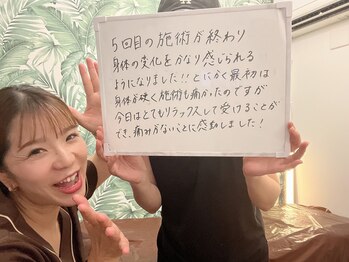 5回目の施術が終わり
身体の変化をかなり感じられる
ようになりました!!とにかく最初は
身体が硬く施術も痛かったのですが
今日はとてもリラックスして受けることが
でき、痛みがないことに感動しました!